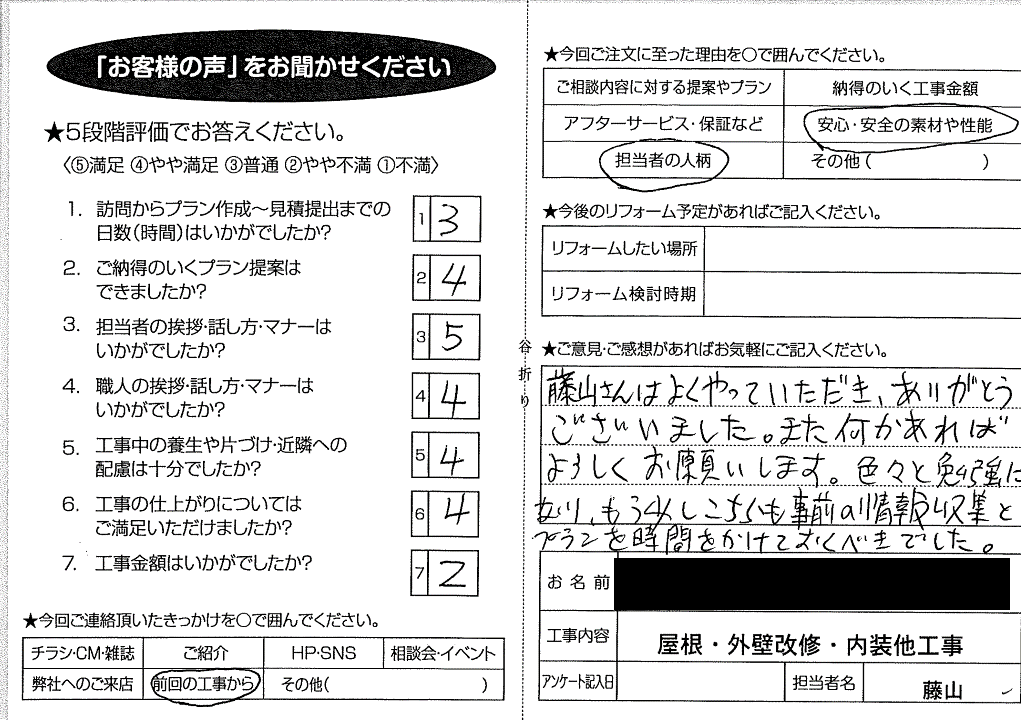 「お客様の声」をお聞かせください
★5段階評価でお答えください。
〈⑤満足 ④やや満足 ③普通 ②やや不満 ①不満〉
1. 訪問からプラン作成〜見積提出までの
日数(時間)はいかがでしたか?
1 3
2. ご納得のいくプラン提案は
できましたか?
2 4
3. 担当者の挨拶・話し方・マナーは
いかがでしたか?
3 5
4. 職人の挨拶・話し方・マナーは
いかがでしたか?
4 4
5. 工事中の養生や片づけ・近隣への
配慮は十分でしたか?
5 4
6. 工事の仕上がりについては
ご満足いただけましたか?
6 4
7. 工事金額はいかがでしたか?
7 2
★今回ご連絡頂いたきっかけを○で囲んでください。
チラシ・CM・雑誌 ご紹介 HP・SNS 相談会・イベント
弊社へのご来店 前回の工事から その他( )
谷折り
★今回ご注文に至った理由を○で囲んでください。
ご相談内容に対する提案やプラン 納得のいく工事金額
アフターサービス・保証など 安心・安全の素材や性能
担当者の人柄 その他( )
★今後のリフォーム予定があればご記入ください。
リフォームしたい場所
リフォーム検討時期
★ご意見・ご感想があればお気軽にご記入ください。
藤山さんはよくやっていただき、ありがとう
ございました。また何かあれば
よろしくお願いします。色々と勉強に
なり、もう少しこちらも事前の情報収集と
プランを時間をかけておくべきでした。
お名前
工事内容 屋根・外壁改修・内装他工事
アンケート記入日 担当者名 藤山